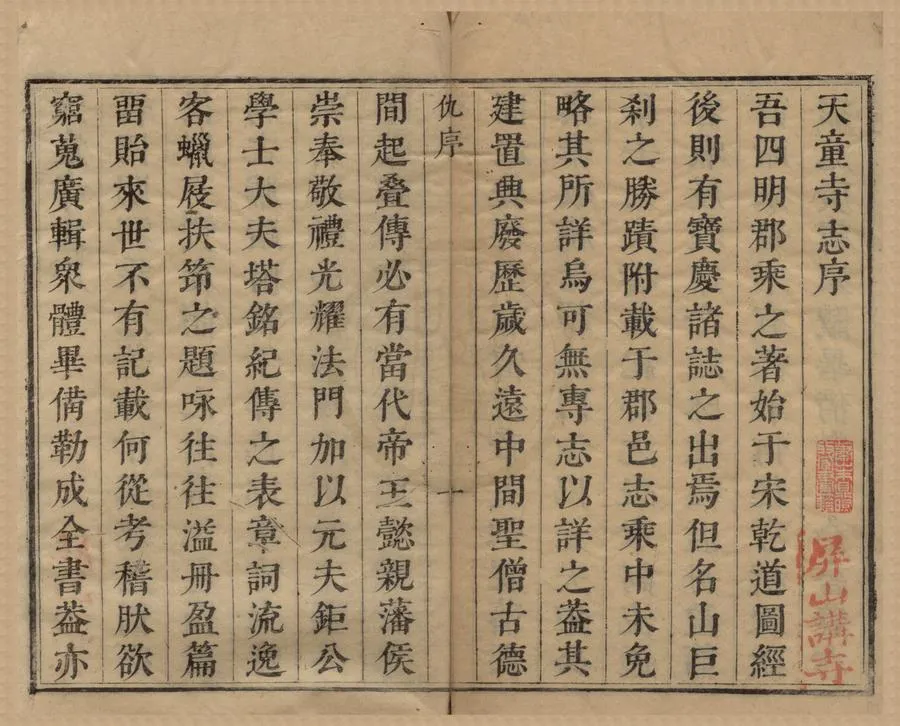 天童寺志序
吾四明郡乘之著始于宋乾道圖經
後則有寶慶諸誌之出焉但名山巨
刹之勝蹟附載于郡邑志乘中未免
略其所詳烏可無專志以詳之葢其
建置興廢歷歲久遠中間聖僧古德
仇序
一
間起叠傳必有當代帝王懿親藩侯
崇奉敬禮光耀法門加以元夫鉅公
學士大夫塔銘紀傳之表章詞流逸
客蠟屐扶筇之題咏往往溢册盈篇
畱貽來世不有記載何從考稽肰欲
窮蒐廣輯衆體畢俻勒成全書葢亦
屏山講寺